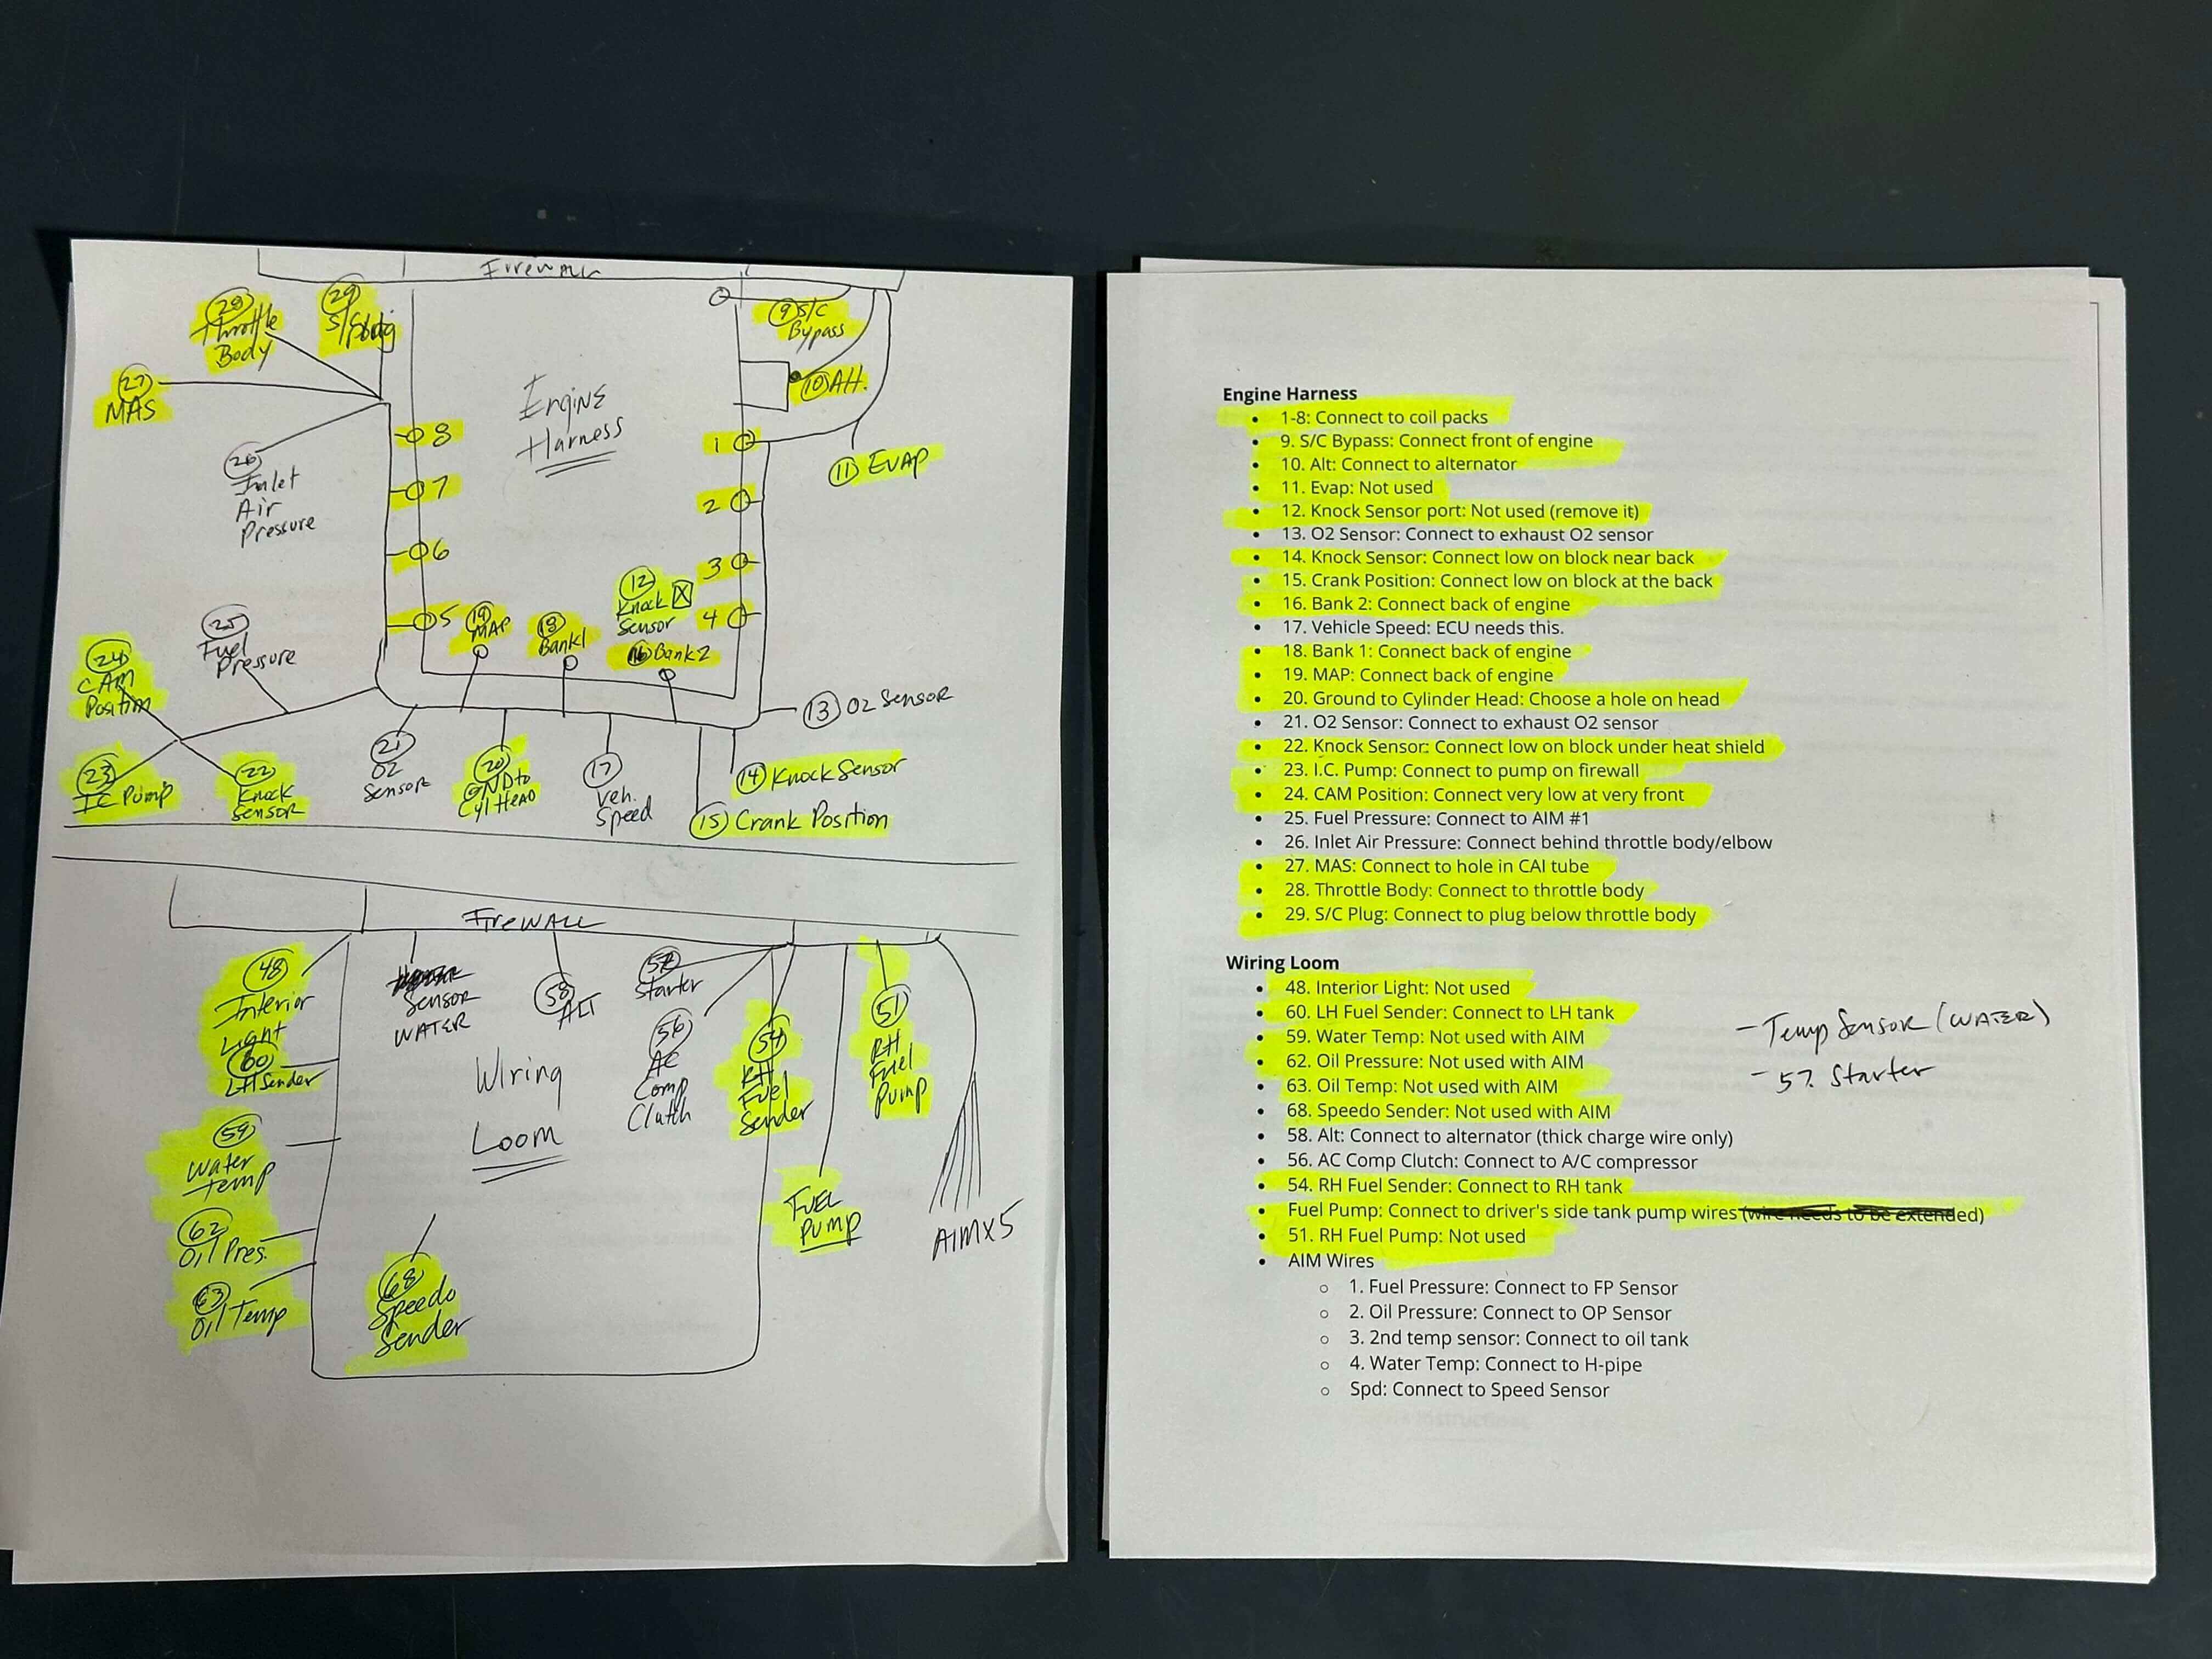 Firewall
28
Throttle
Body
29
S/C Plug
9 S/C
Bypass
27
MAS
10 Alt.
Engine
Harness
8
1
11 Evap
26
Inlet
Air
Pressure
7
2
6
3
12
Knock
Sensor
5
19
MAP
18
Bank1
4
16 Bank2
25
Fuel
Pressure
24
CAM
Position
13 O2 Sensor
23
IC Pump
22
Knock
Sensor
21
O2
Sensor
20
GND to
Cyl Head
17
Veh.
Speed
14 Knock Sensor
15 Crank Position
Firewall
48
Interior
Light
Sensor
WATER
58
ALT
57
Starter
51
RH
Fuel
Pump
60
LH Sender
56
AC
Comp
Clutch
54
RH
Fuel
Sender
Wiring
Loom
59
Water
Temp
62
Oil Pres.
63
Oil Temp
68
Speedo
Sender
Fuel
Pump
AIMx5
Engine Harness
• 1-8: Connect to coil packs
• 9. S/C Bypass: Connect front of engine
• 10. Alt: Connect to alternator
• 11. Evap: Not used
• 12. Knock Sensor port: Not used (remove it)
• 13. O2 Sensor: Connect to exhaust O2 sensor
• 14. Knock Sensor: Connect low on block near back
• 15. Crank Position: Connect low on block at the back
• 16. Bank 2: Connect back of engine
• 17. Vehicle Speed: ECU needs this.
• 18. Bank 1: Connect back of engine
• 19. MAP: Connect back of engine
• 20. Ground to Cylinder Head: Choose a hole on head
• 21. O2 Sensor: Connect to exhaust O2 sensor
• 22. Knock Sensor: Connect low on block under heat shield
• 23. I.C. Pump: Connect to pump on firewall
• 24. CAM Position: Connect very low at very front
• 25. Fuel Pressure: Connect to AIM #1
• 26. Inlet Air Pressure: Connect behind throttle body/elbow
• 27. MAS: Connect to hole in CAI tube
• 28. Throttle Body: Connect to throttle body
• 29. S/C Plug: Connect to plug below throttle body
Wiring Loom
• 48. Interior Light: Not used
• 60. LH Fuel Sender: Connect to LH tank
• 59. Water Temp: Not used with AIM
• 62. Oil Pressure: Not used with AIM
• 63. Oil Temp: Not used with AIM
• 68. Speedo Sender: Not used with AIM
• 58. Alt: Connect to alternator (thick charge wire only)
• 56. AC Comp Clutch: Connect to A/C compressor
• 54. RH Fuel Sender: Connect to RH tank
• Fuel Pump: Connect to driver's side tank pump wires (wire needs to be extended)
• 51. RH Fuel Pump: Not used
• AIM Wires
○ 1. Fuel Pressure: Connect to FP Sensor
○ 2. Oil Pressure: Connect to OP Sensor
○ 3. 2nd temp sensor: Connect to oil tank
○ 4. Water Temp: Connect to H-pipe
○ Spd: Connect to Speed Sensor
- Temp Sensor (WATER)
- 57. Starter